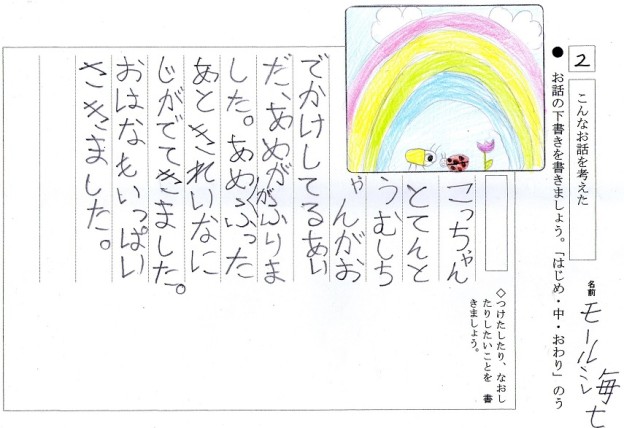 2
こんなお話を考えた
●お話の下書きを書きましょう。「はじめ・中・おわり」のう
名前
モール海七
こっちゃん
とてんと
うむしち
ゃんがお
でかけしてるあい
だ、あめがふりま
した。あめがふった
あときれいなに
じがでてきました。
おはなもいっぱい
さきました。
◇つけたしたり、なおし
たりしたいことを 書
きましょう。